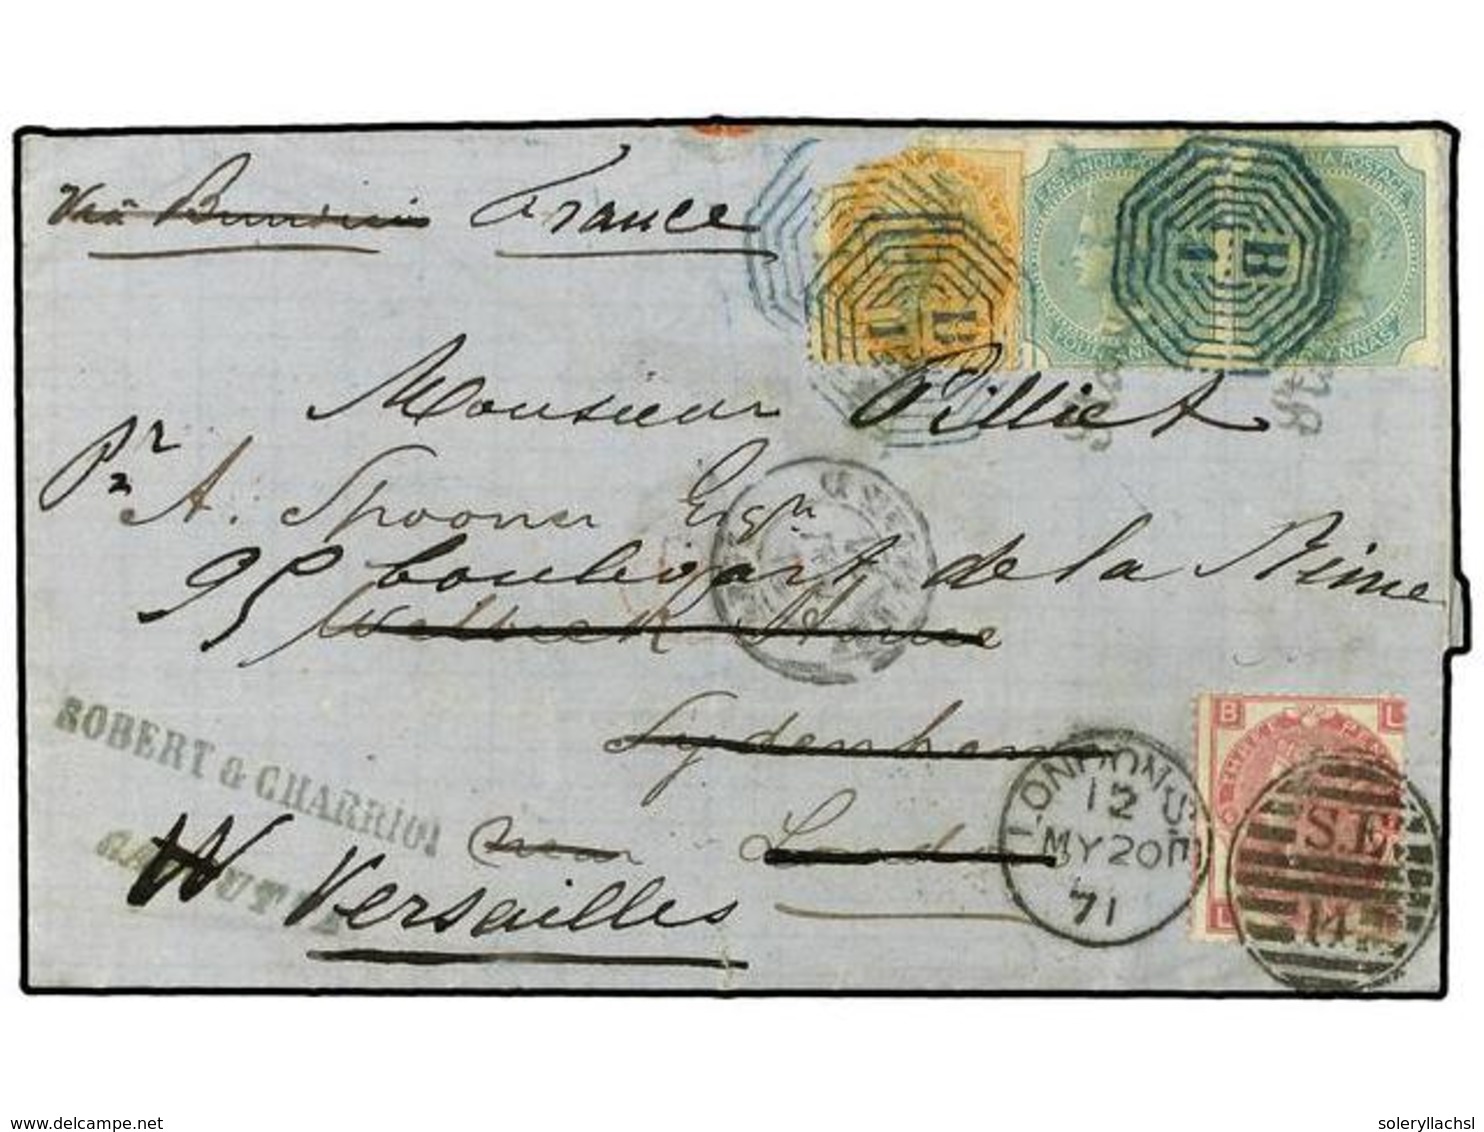 Via Brindisi France
EAST INDIA POSTAGE
INDIA POSTAGE
FOUR ANNAS
ANNAS
B
1
B
1
Monsieur Pilliet
pr A. Spooner Esqr
95 boulevart de la Reine
Sydenham
near London
Versailles
ROBERT & CHARRIOL
CALCUTTA
LONDON S.E
12
MY 20
71
B L
L
S.E
14
www.delcampe.net
soleryllachsl